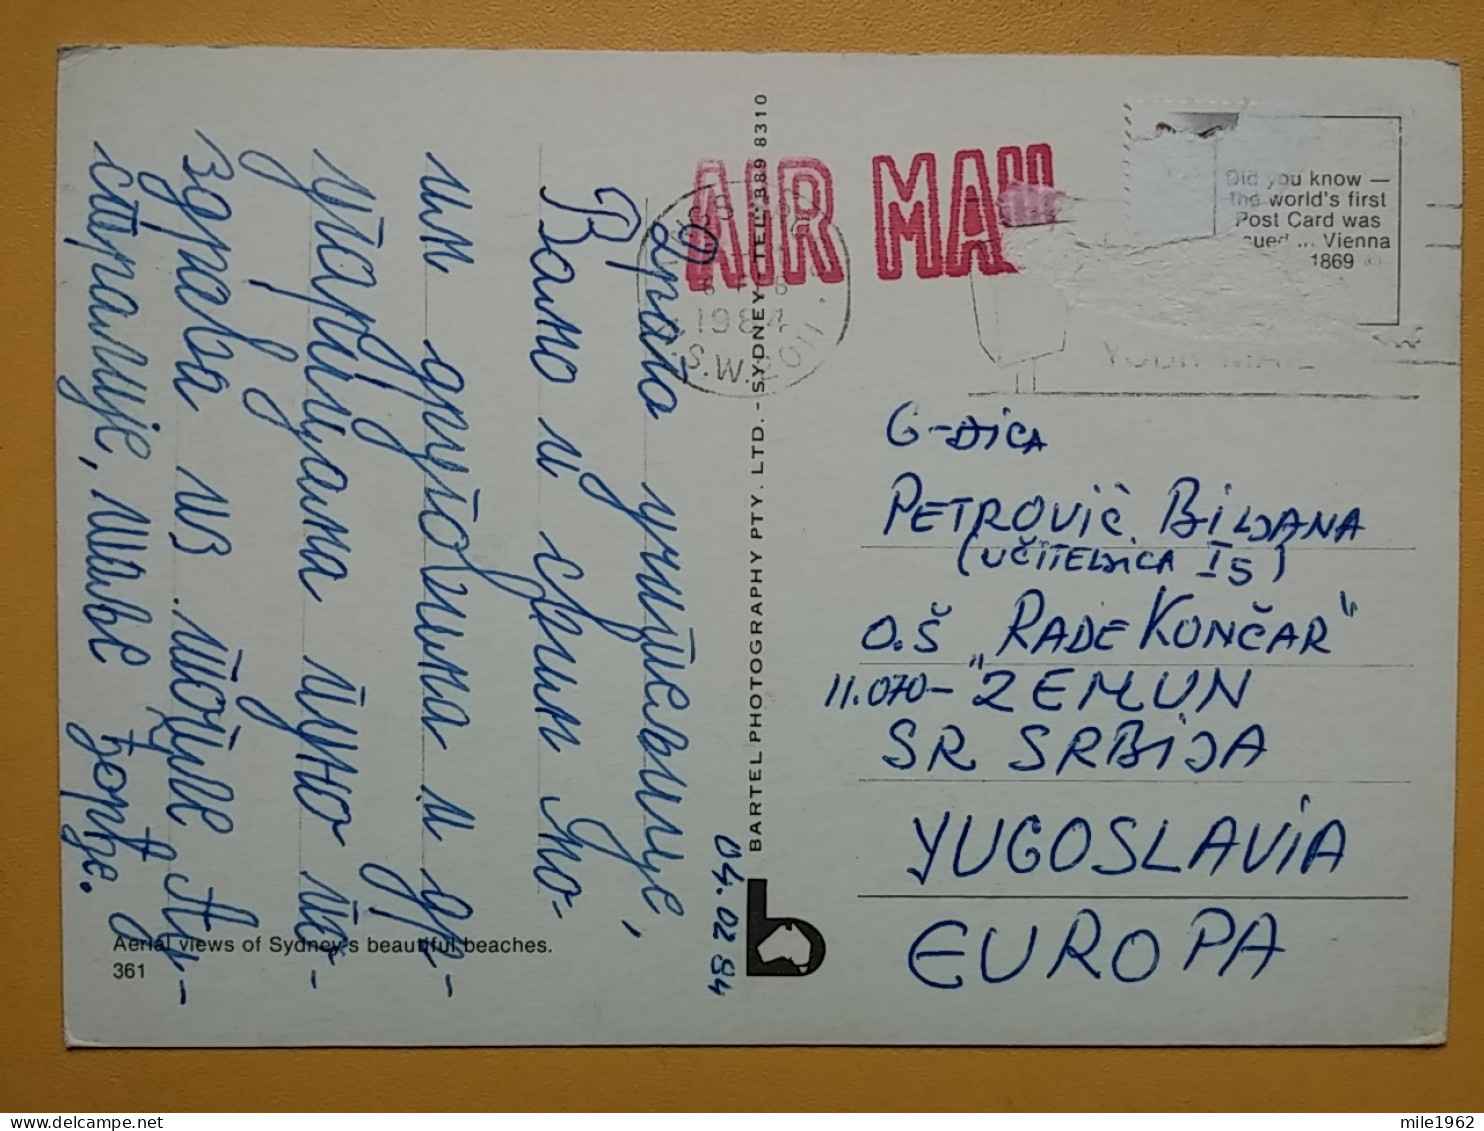 Драга учитељице,
Вамо и свим мо-
им друговима и дру-
гарицама пуно по-
здрава из топле Ау-
стралије, шаље Ђорђе.
04.02 84
Aerial views of Sydney's beautiful beaches.
361
BARTEL PHOTOGRAPHY PTY. LTD. - SYDNEY - TEL: 389 8310
AIR MAIL
1984
N.S.W. 2011
YOUR MAIL
Did you know —
the world's first
Post Card was
issued in Vienna
1869
G-ĐICA
PETROVIĆ BILJANA
(UČITELJICA I5)
O.Š „RADE KONČAR"
11.070- ZEMUN
SR SRBIJA
YUGOSLAVIA
EUROPA
mile1962